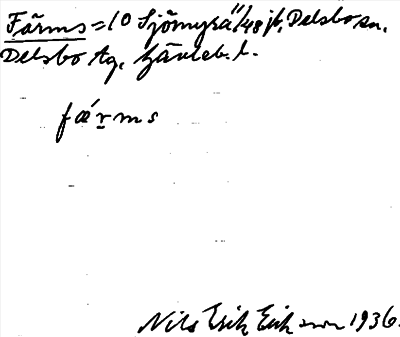 Färms = 10 Sjömyra 11/48 jb, Delsbo sn,
Delsbo tg, Gävleb. l.
fæ´rms
Nils Erik Erikson 1936.